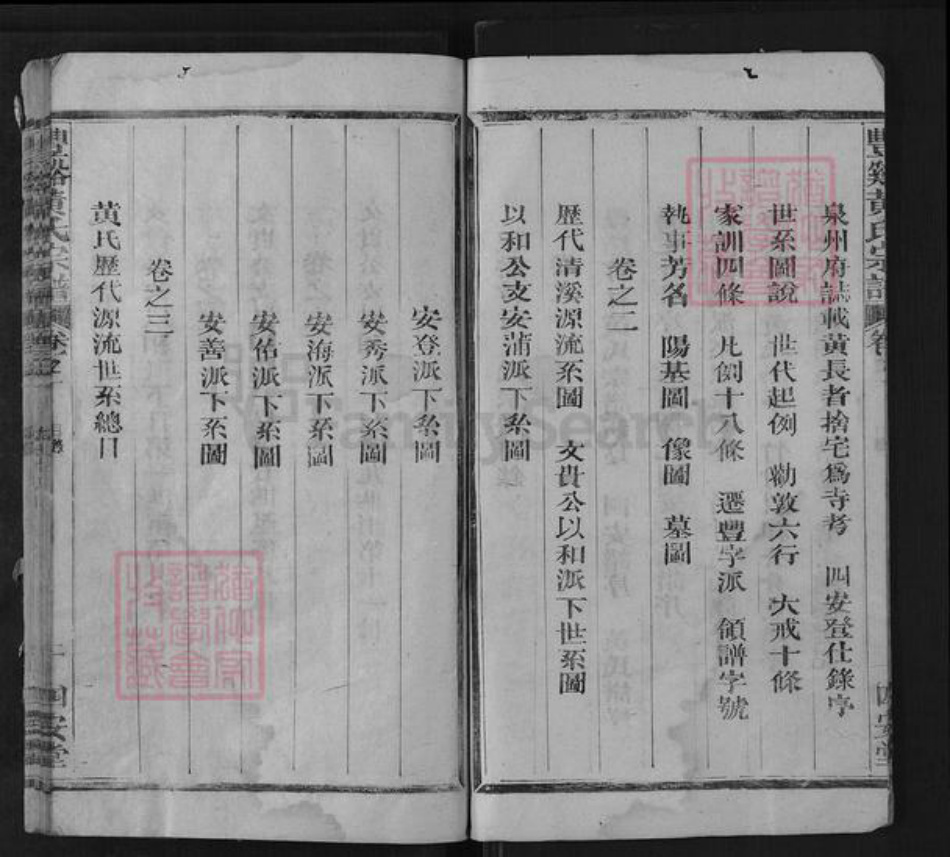 泉州府誌載黃長者捨宅爲寺考　四安登仕錄序
世系圖說　世代起例　勸敦六行　大戒十條
家訓四條　凡例十八條　遷豐字派　領譜字號
執事芳名　陽基圖　像圖　墓圖
卷之二
歷代清溪源流系圖　文貴公以和派下世系圖
以和公支安蒲派下系圖
安登派下系圖
安秀派下系圖
安海派下系圖
安佑派下系圖
安善派下系圖
卷之三
黃氏歷代源流世系總目
豐谿黃氏宗譜
四安堂
FamilySearch